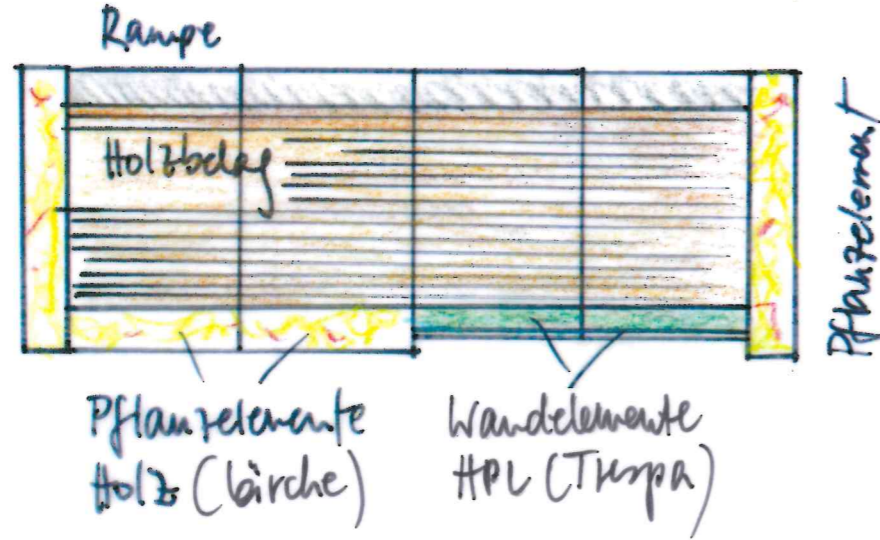 Rampe
Holzbelag
Pflanzelement
Pflanzelemente
Holz (Lärche)
Wandelemente
HPL (Trespa)